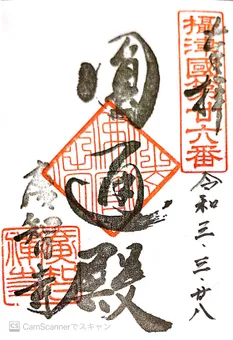 奉拝
攝津國第廿六番
令和三・三・廿八
圓通殿
廣智寺
CS CamScannerでスキャン